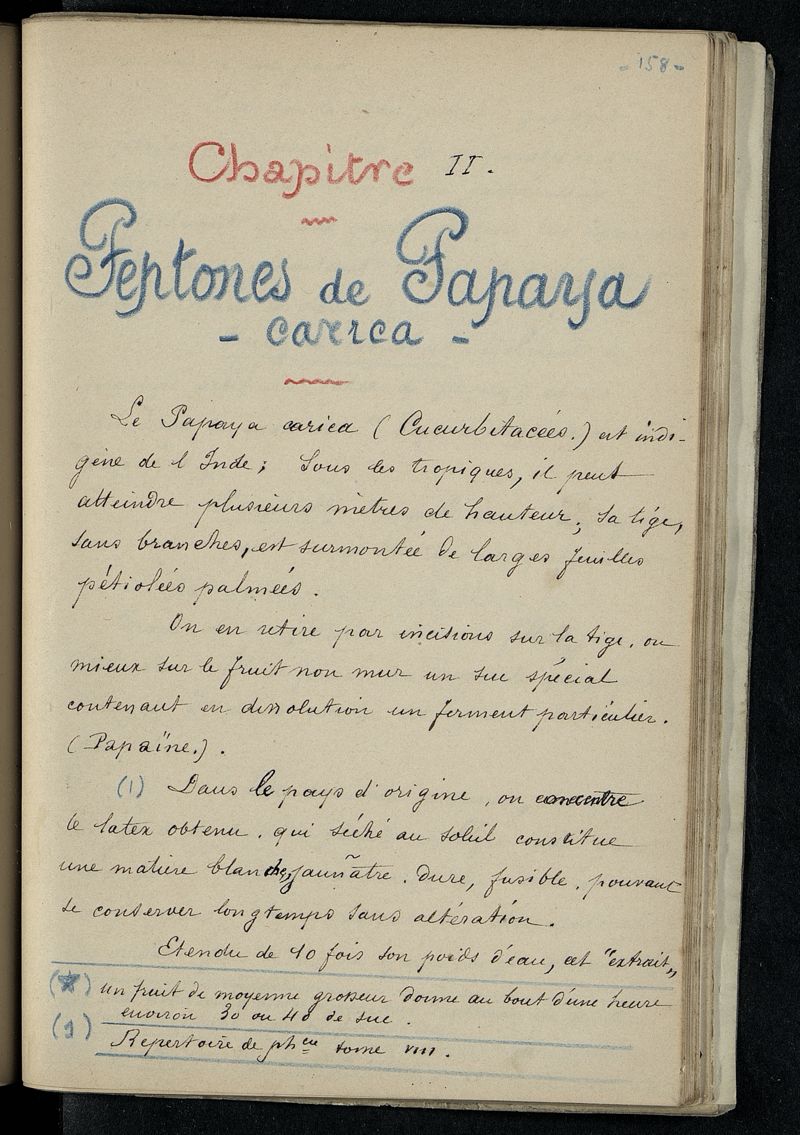 - 158 -
Chapitre II.
Peptones de Papaya
- carica -
Le Papaya carica (Cucurbitacées.) est indi-
gène de l'Inde; Sous les tropiques, il peut
atteindre plusieurs mètres de hauteur; sa tige,
sans branches, est surmontée de larges feuilles
pétiolées palmées.
On en retire par incisions sur la tige, ou
mieux sur le fruit non mur un suc spécial
contenant en dissolution un ferment particulier.
(Papaïne.).
(1) Dans le pays d'origine, on concentre
le latex obtenu, qui séché au soleil constitue
une matière blanche, jaunâtre. Dure, fusible, pouvant
se conserver longtemps sans altération.
Etendu de 10 fois son poids d'eau, cet "extrait"
(*) un fruit de moyenne grosseur donne au bout d'une heure
environ 30 ou 40 de suc.
(1) Repertoire de phcie tome VIII.